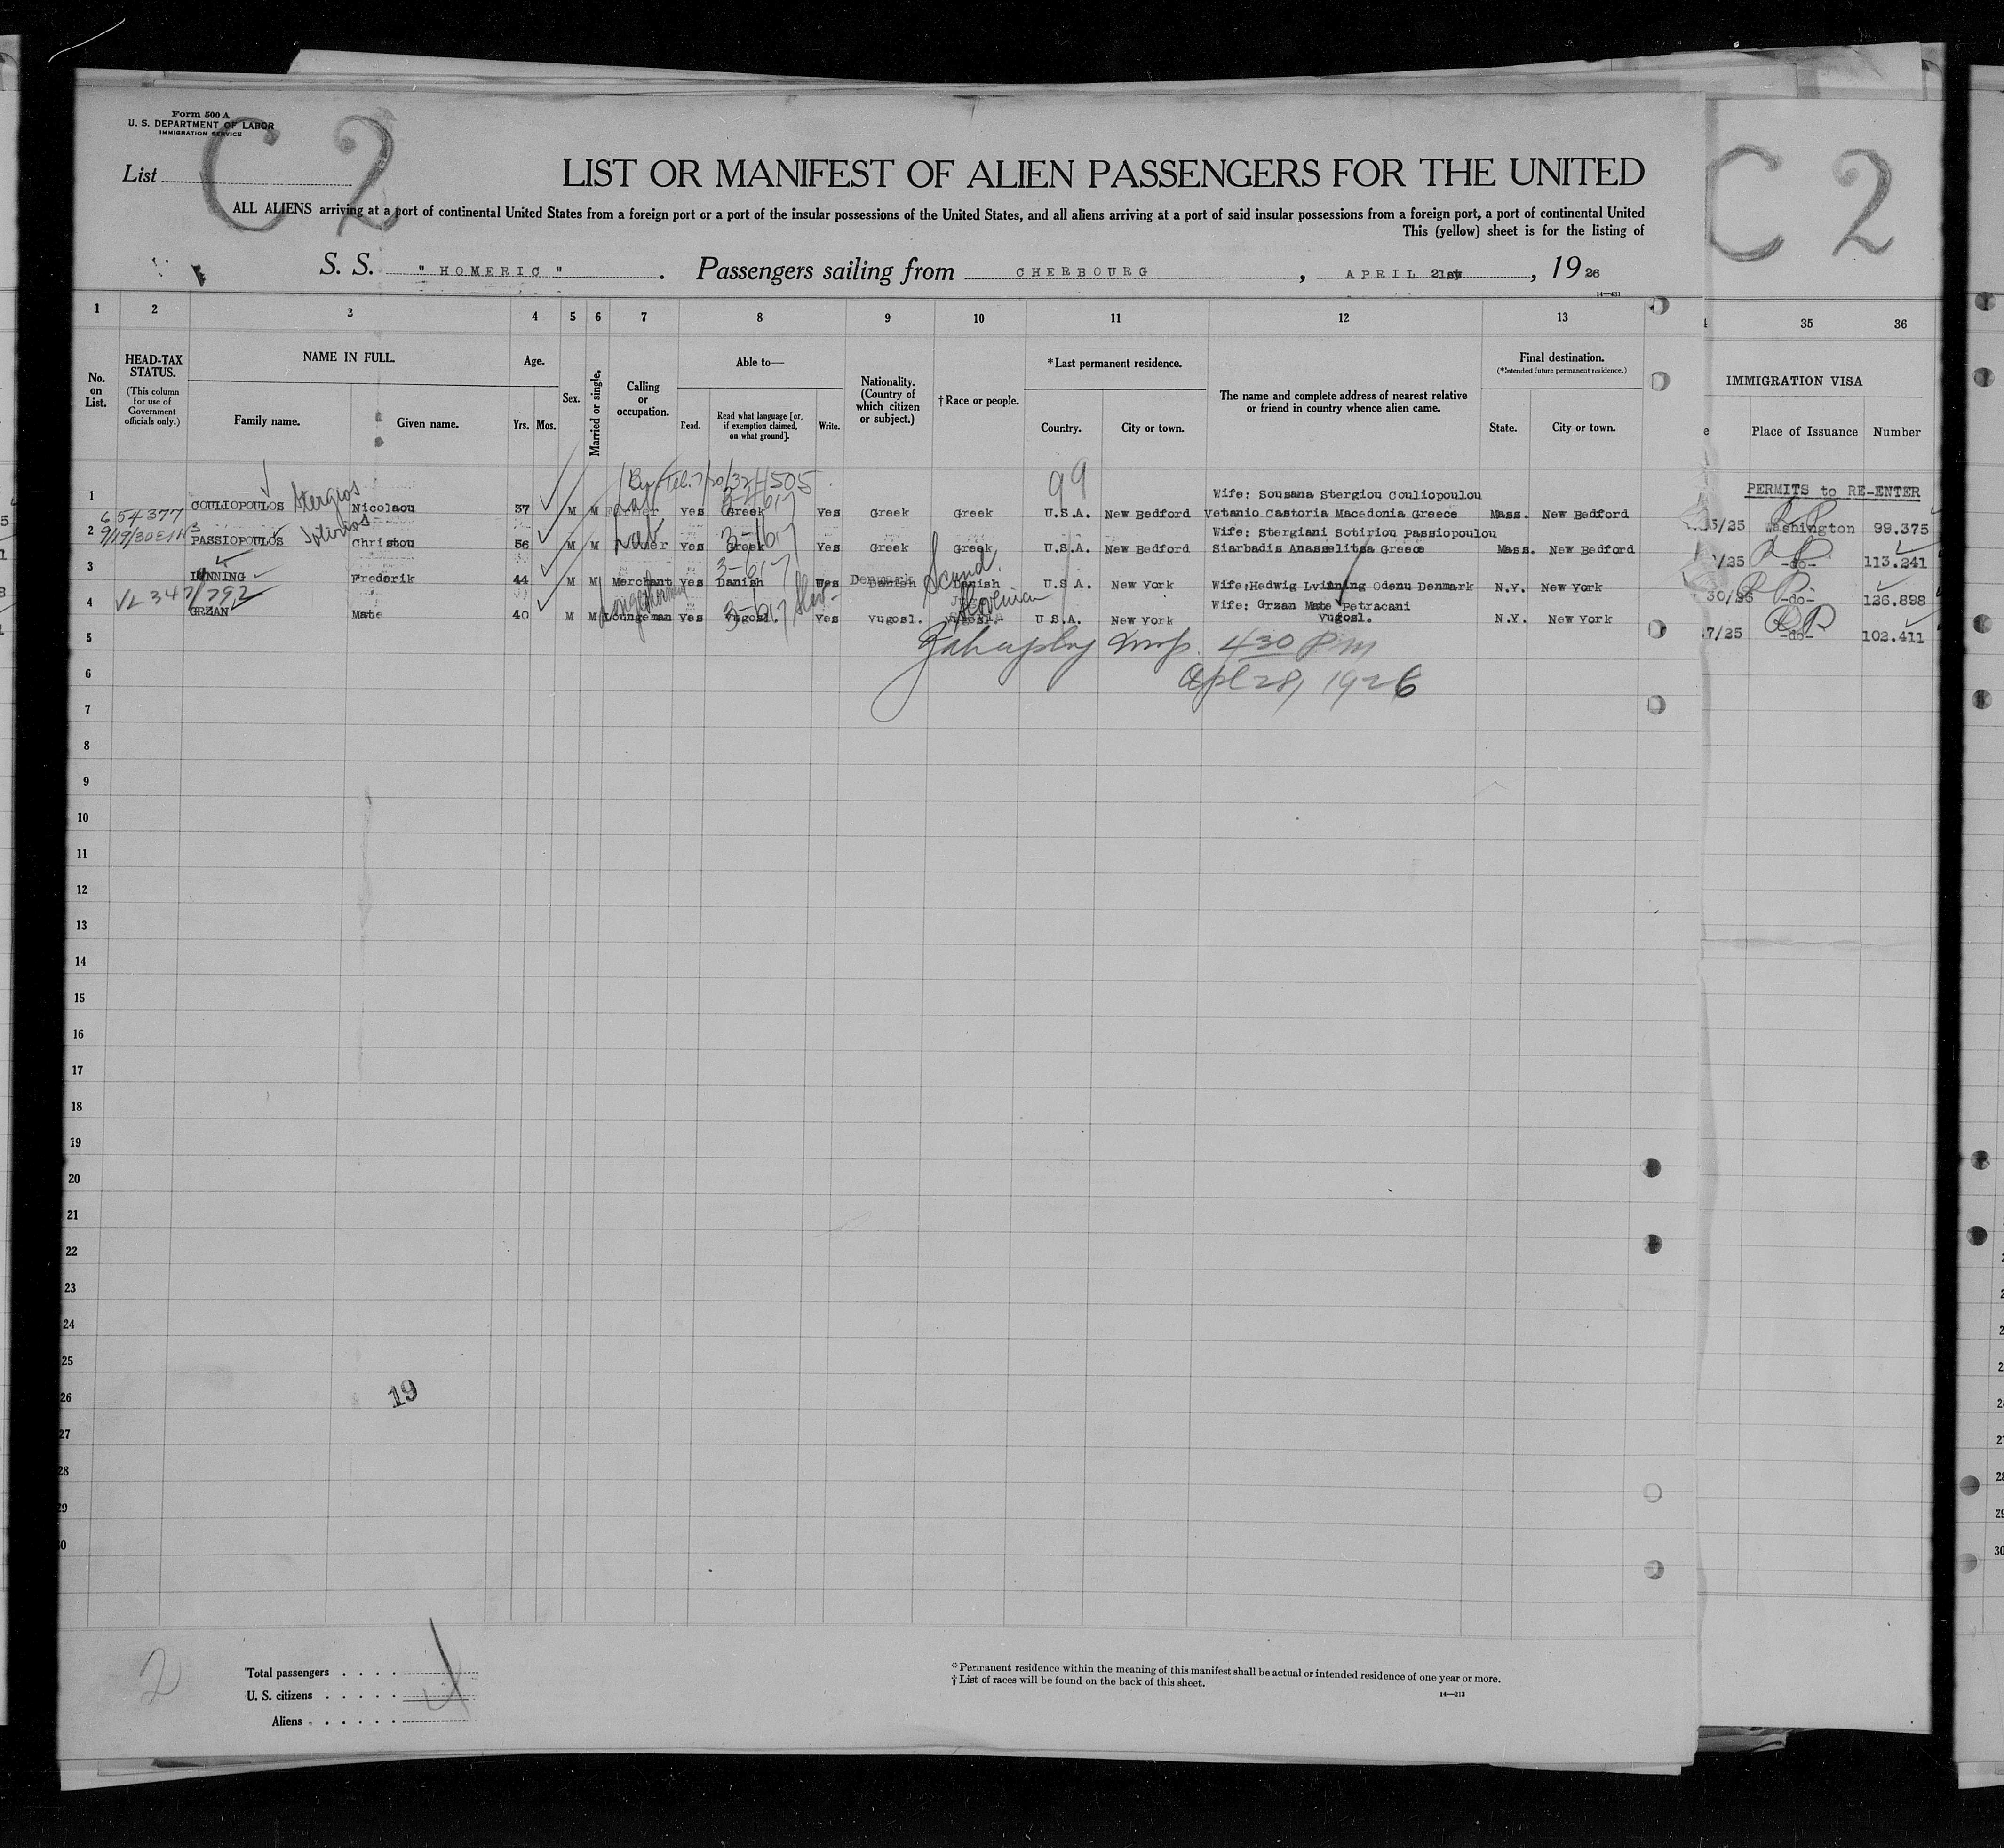 Form 500 A
U. S. DEPARTMENT OF LABOR
IMMIGRATION SERVICE
C 2
List
LIST OR MANIFEST OF ALIEN PASSENGERS FOR THE UNITED
ALL ALIENS arriving at a port of continental United States from a foreign port or a port of the insular possessions of the United States, and all aliens arriving at a port of said insular possessions from a foreign port, a port of continental United
This (yellow) sheet is for the listing of
S. S. " HOMERIC " . Passengers sailing from CHERBOURG , APRIL 21st , 19 26
14—431
C 2
1 2 3 4 5 6 7 8 9 10 11 12 13
35 36
No. on List.
HEAD-TAX STATUS.
(This column for use of Government officials only.)
NAME IN FULL.
Family name. Given name.
Age.
Yrs. Mos.
Sex.
Married or single.
Calling or occupation.
Able to—
Read. Read what language [or, if exemption claimed, on what ground]. Write.
Nationality. (Country of which citizen or subject.)
†Race or people.
*Last permanent residence.
Country. City or town.
The name and complete address of nearest relative or friend in country whence alien came.
Final destination.
(*Intended future permanent residence.)
State. City or town.
IMMIGRATION VISA
Place of Issuance Number
PERMITS to RE-ENTER
99
1 COULIOPOULOS Stergios Nicolaou 37 M M Yes Greek Yes Greek Greek U.S.A. New Bedford Wife: Sousana Stergiou Couliopoulou
Vetanio Castoria Macedonia Greece Mass. New Bedford
5/25 Washington 99.375
654377
2 PASSIOPOULOS Sotirios Christou 56 M M Yes Greek Yes Greek Greek U.S.A. New Bedford Wife: Stergiani Sotiriou Passiopoulou
Siarbadis Anasselitsa Greece Mass. New Bedford
/25 -do- 113.241
3 Frederik 44 M M Merchant Yes Danish Yes Denmark Danish Scand. U.S.A. New York Wife:Hedwig Odenu Denmark N.Y. New York
-do- 126.898
4 GRZAN Mate 40 M M Loungeman Longshoreman Yes Yugosl. Yes Yugosl. Slovenian U.S.A. New York Wife: Grzan Mate Petracani
Yugosl. N.Y. New York
7/25 -do- 102.411
5
430 PM
6
Apl 28, 1926
7
8
9
10
11
12
13
14
15
16
17
18
19
20
21
22
23
24
25
26
19
27
28
29
30
2
Total passengers
U. S. citizens
Aliens
*Permanent residence within the meaning of this manifest shall be actual or intended residence of one year or more.
†List of races will be found on the back of this sheet.
14—213